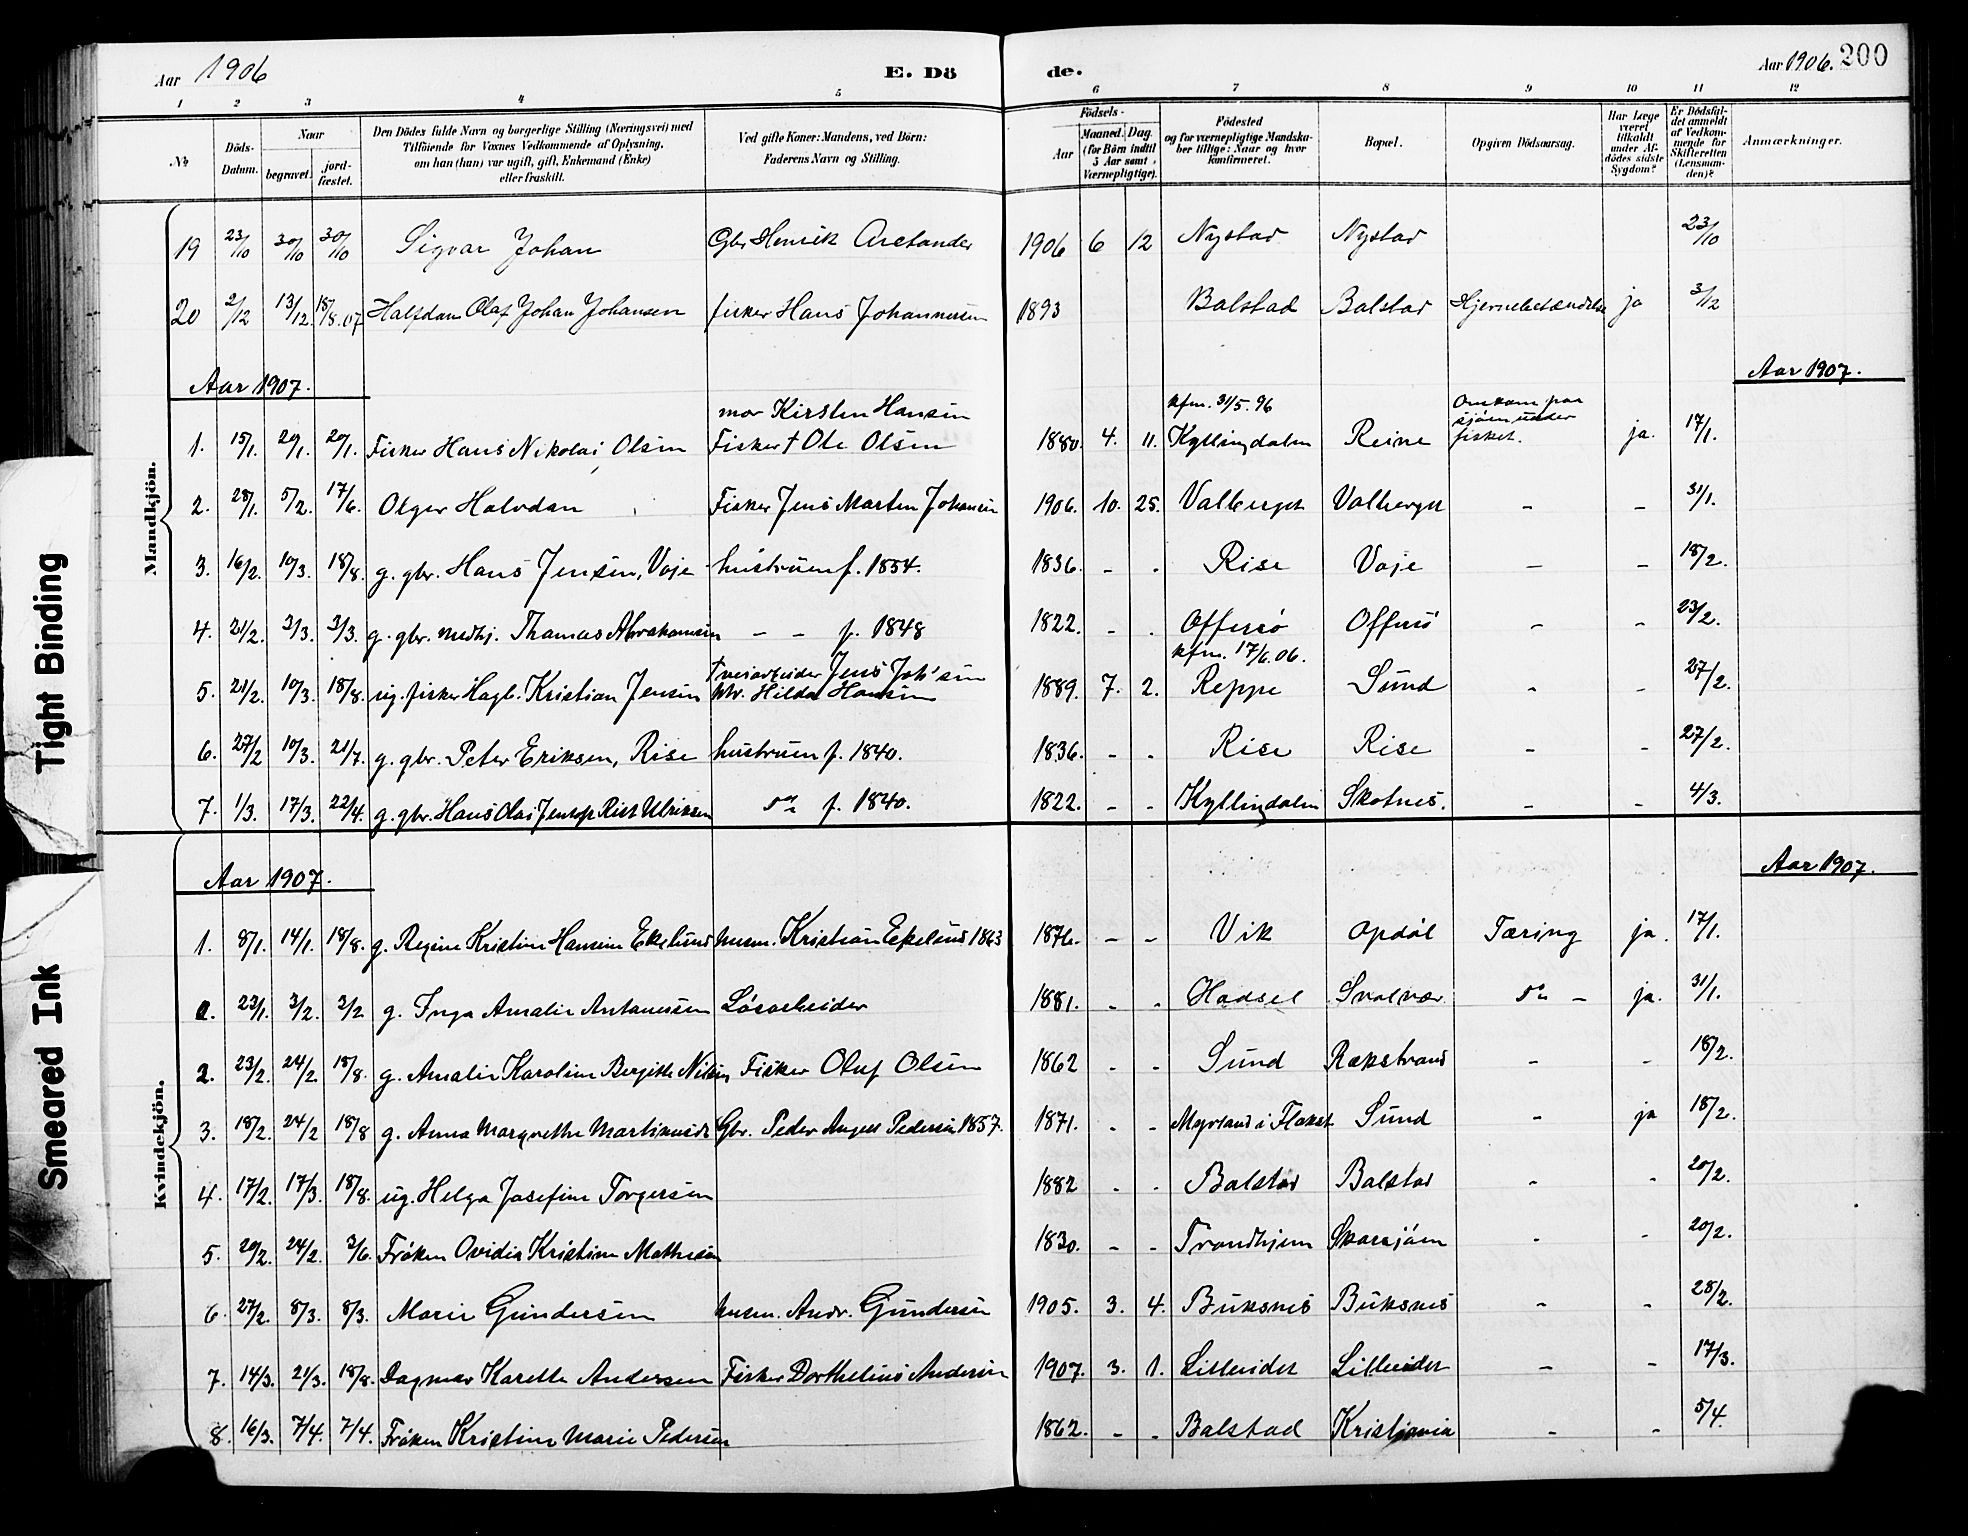 Aar 1906
E. Dö de.
Aar 1906. 200
1 2 3 4 5 6 7 8 9 10 11 12
No
Döds-Datum.
Naar
begravet.
jord-fæstet.
Den Dödes fulde Navn og borgerlige Stilling (Næringsvei) med
Tilföiende for Voxnes Vedkommende af Oplysning,
om han (hun) var ugift, gift, Enkemand (Enke)
eller fraskilt.
Ved gifte Koner: Mandens, ved Börn:
Faderens Navn og Stilling.
Födsels-
Aar
Maaned. Dag.
(for Börn indtil
5 Aar samt
Værnepligtige).
Födested
og for værnepligtige Mandska-
ber tillige: Naar og hvor
konfirmeret.
Bopæl.
Opgiven Dödsaarsag.
Har Læge
været
tilkaldt
under Af-
dödes sidste
Sygdom?
Er Dödsfal-
det anmeldt
af Vedkom-
mende for
Skifteretten
(Lensman-
den)?
Anmærkninger.
Mandkjön.
19 23/10 30/10 30/10 Sigvar Johan Gbr Henrik Arctander 1906 6 12 Nystad Nystad 23/10
20 2/12 13/12 18/8.07 Halfdan Olaf Johan Johansen fisker Hans Johannesen 1893 Balstad Balstad Hjernebetændelse ja 3/12
Aar 1907.
Aar 1907.
mor Kirsten Hansen kfm. 31/5.96 Omkom paa
sjöen under
1. 15/1. 20/1. 20/1. Fisker Hans Nikolai Olsen Fisker † Ole Olsen 1880. 4. 11. Kyllingdalen Reine fisket. ja. 17/1.
2. 28/1. 5/2. 17/6. Olger Halvdan Fisker Jens Marten Johansen 1906. 10. 25. Valberget Valberget - - 31/1.
3. 16/2. 10/3. 18/8. g. gbr. Hans Jensen, Voje hustruen f. 1854. 1836. - . Rise Voje - - 18/2.
4. 21/2. 3/3. 3/3. g. gbr. medhj. Thomas Abrahamsen - - f. 1848 1822. - . Offersö Offersö - - 23/2.
† veiarbeider Jens Joh'sen kfm. 17/6.06.
5. 21/2. 10/3. 18/8. ug. fisker Hagb. Kristian Jensen Hilda Hansen 1889. 7. 2. Reppe Sund - - 27/2.
6. 27/2 10/3. 21/7. g. gbr. Peter Eriksen, Rise hustruen f. 1840. 1836. - - Rise Rise - - 27/2.
7. 1/3. 17/3. 22/4. g. gbr. Hans Olai Jentoft Rist Ulriksen do f. 1840. 1822. - - Kyllingdalen Skotnes. - - 4/3.
Kvindekjön.
Aar 1907.
Aar 1907.
1. 8/1. 14/1. 18/8. g. Regine Kristine Hansen Ekelund husm. Kristian Ekelund 1863 1876. - - Vik Opdöl Tæring ja. 17/1.
23/1. 3/2. 3/2 g. Inga Amalie Antonesen Lösarbeider 1881. - - Hadsel Svolvær do - ja. 31/1.
2. 23/2. 24/2. 18/8. g. Amalie Karoline Bergitte Nilsen Fisker Oluf Olsen 1862 - - Sund Rækstrand - - 18/2.
3. 18/2. 24/2 18/8 g. Anna Margrethe Gbr. Peder Angell Pedersen 1857. 1871. - - Myrland i Flakst Sund - ja 18/2.
4. 17/2. 17/3. 18/8. ug. Helga Josefine Torgersen 1882 - - Balstad Balstad - - 20/2.
5. 20/2. 24/2. 3/6. Fröken Ovidia Kristine Mathiesen 1830. - - Trondhjem Skarsjöen - - 20/2.
6. 27/2. 8/3. 8/3. Marie Gundersen husm. Andr. Gundersen 1905. 3. 4. Buksnes Buksnes - - 28/2.
7. 14/3. 21/3. 18/8. Dagmar Karelle Andersen Fisker Dorthelius Andersen 1907. 3. 1. Lilleeidet Lilleeidet - - 17/3.
8. 16/3. 7/4. 7/4. Fröken Kristine Marie Pedersen 1862. - - Balstad Kristiania - - 5/4.
Tight Binding
Smeared Ink